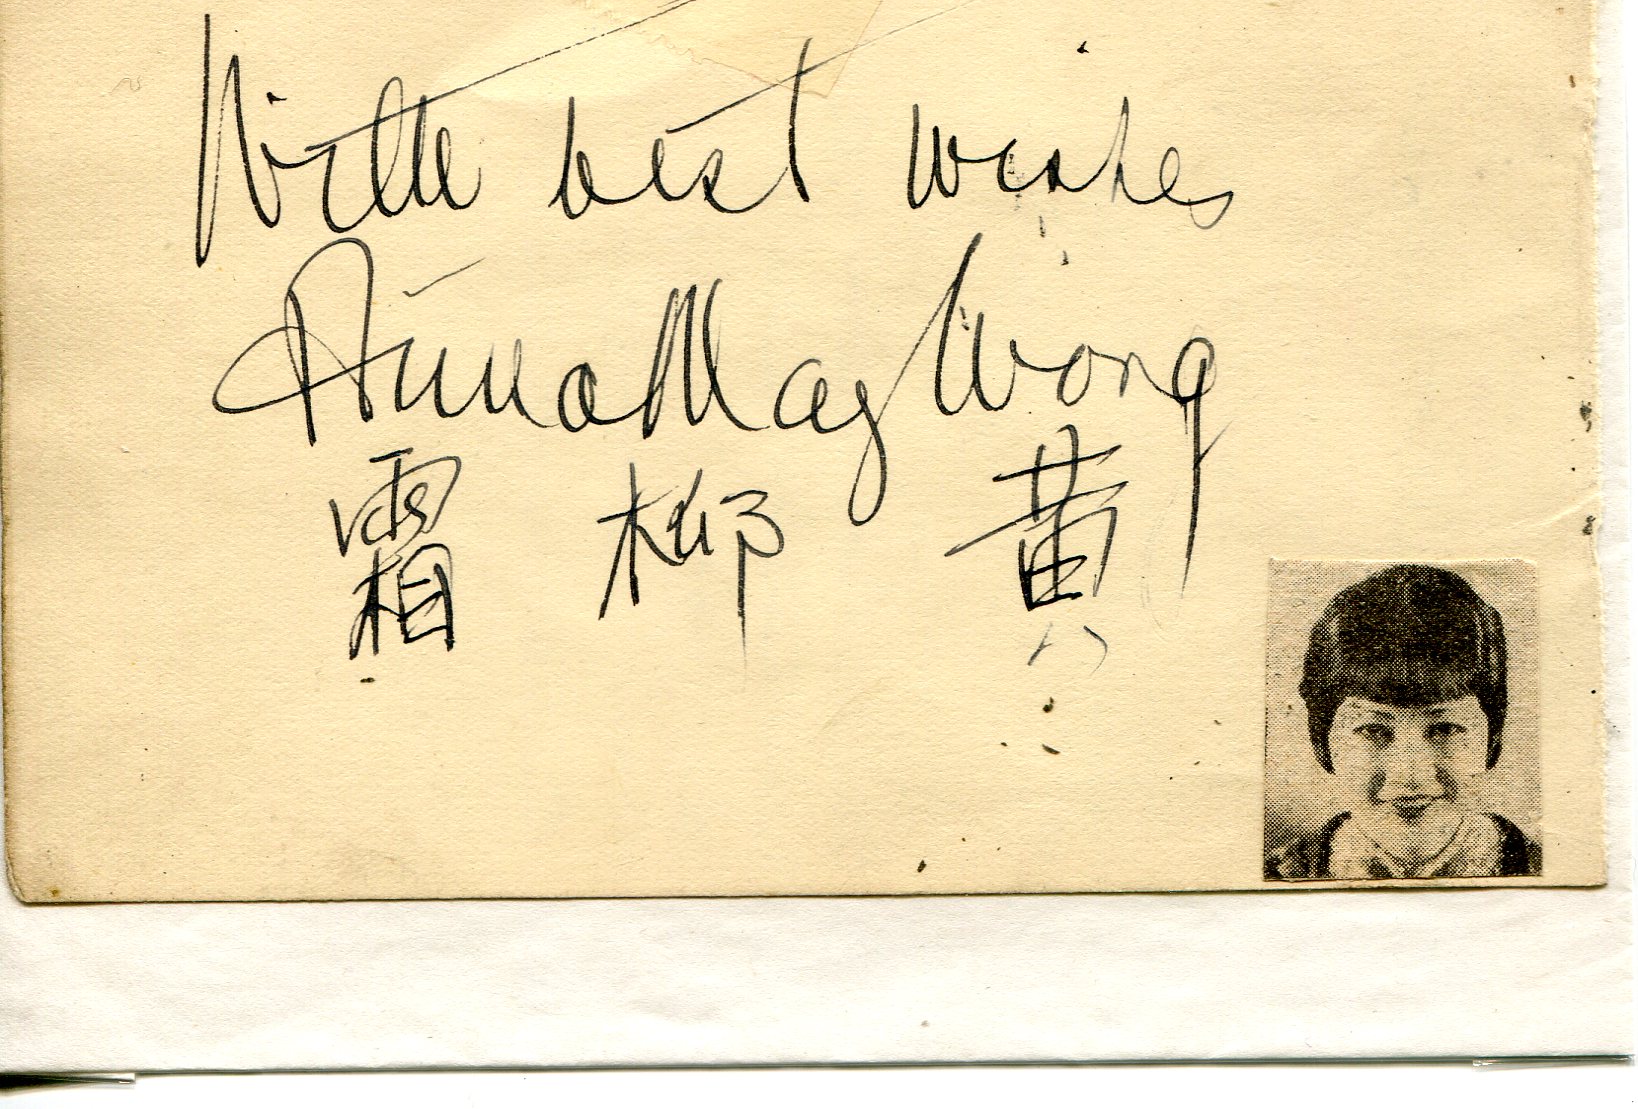 With best wishes
Anna May Wong
黃柳霜